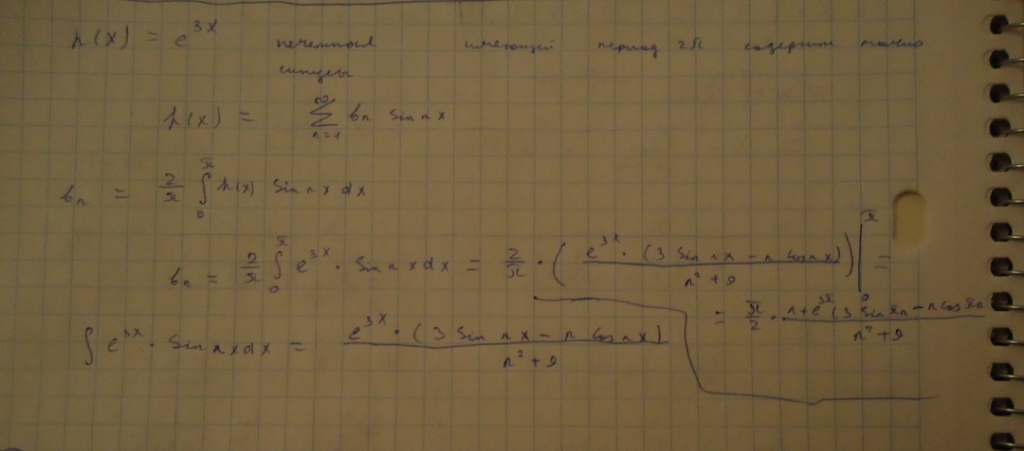 h(x) = e^{3x} нечетная имеющей период 2π содержит только
синусы
h(x) = \sum_{n=1}^{∞} b_n sin nx
b_n = \frac{2}{π} \int_0^π h(x) sin nx dx
b_n = \frac{2}{π} \int_0^π e^{3x} · sin nx dx = \frac{2}{π} · ( \frac{e^{3x} · (3 sin nx − n cos nx)}{n^2+9} ) |_0^π =
= \frac{π}{2} · \frac{n + e^{3π} (3 sin πn − n cos πn}{n^2+9}
∫ e^{3x} · sin nx dx = \frac{e^{3x} · (3 sin nx − n cos nx)}{n^2+9}